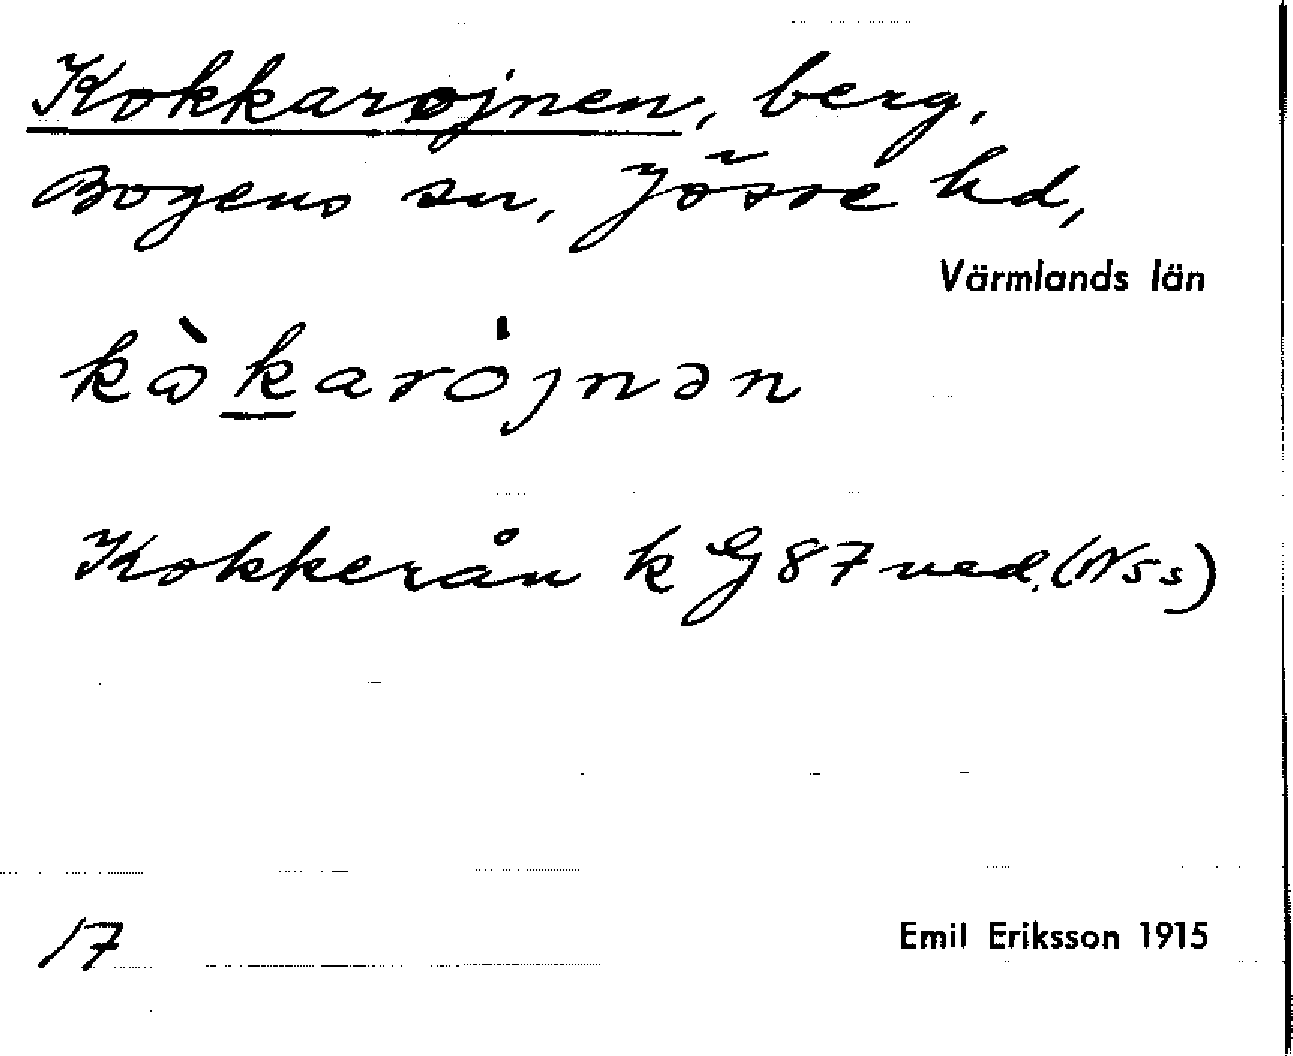 Kokkarojnen, berg,
Bogens sn, Jösse hd,
Värmlands län
kὼkarójnən
Kokkerån k G87 ned. (NSs)
17
Emil Eriksson 1915